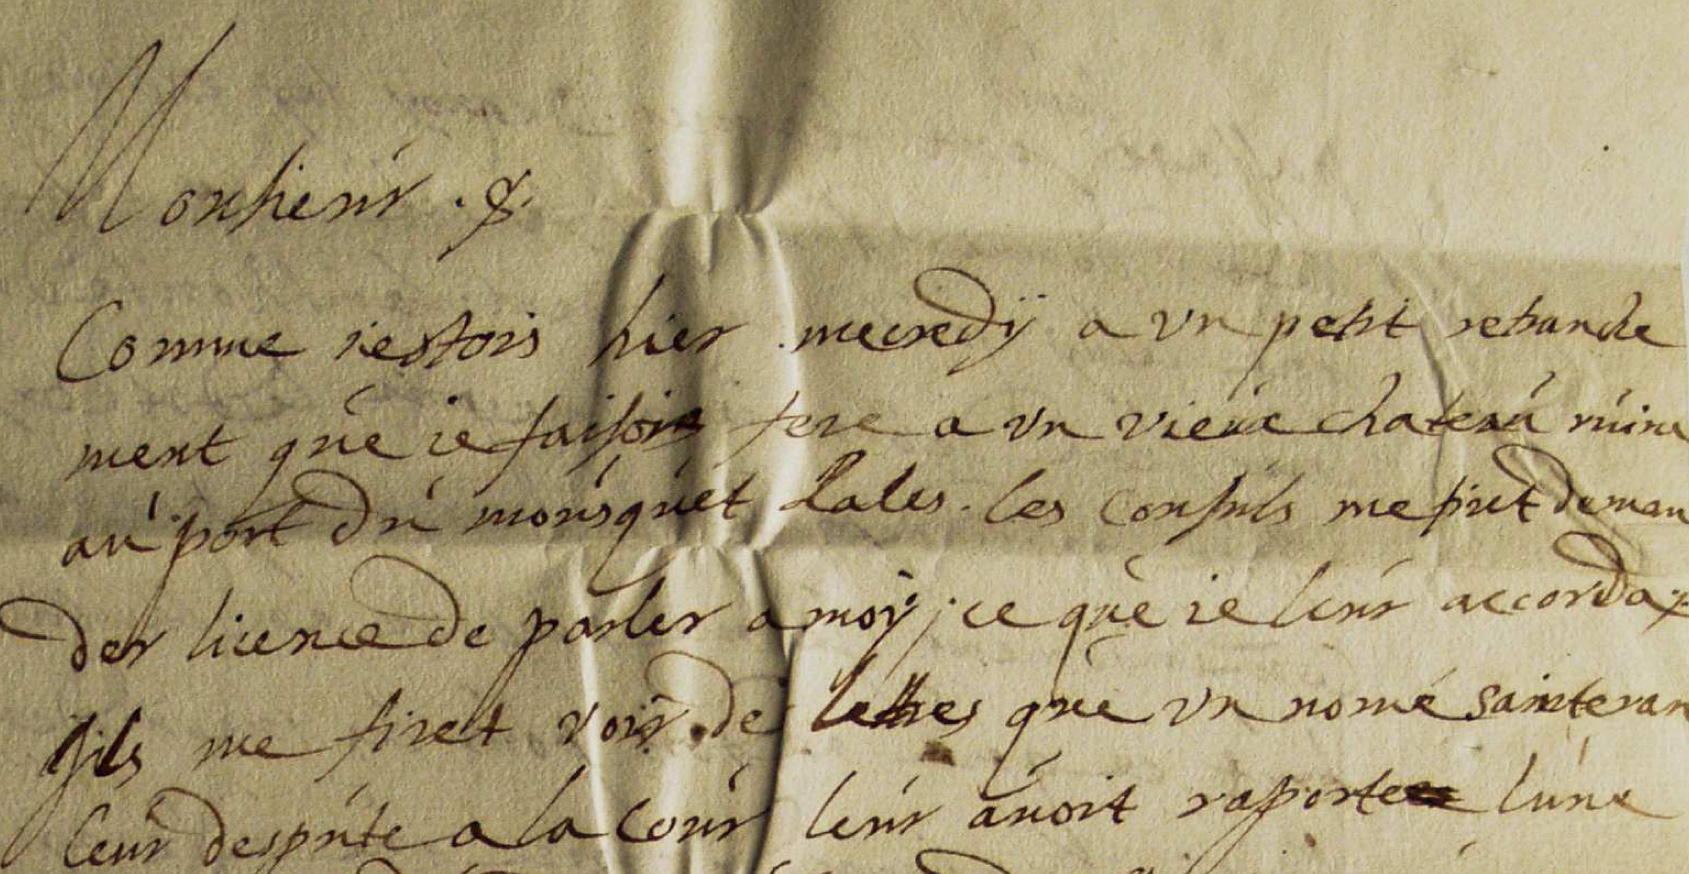 Monsieur .&.
Comme iestois hier mecredÿ a vn petit retranche
ment que ie faisois fere a vn vieux chateau ruine
au port du mousquet Lales. les consuls me firet deman
der licence de parler a moÿ, ce que ie leur accorday
Ils me firet voir de lettres que vn nomé sainteran
leur despute a la cour leur auoit raporte lune